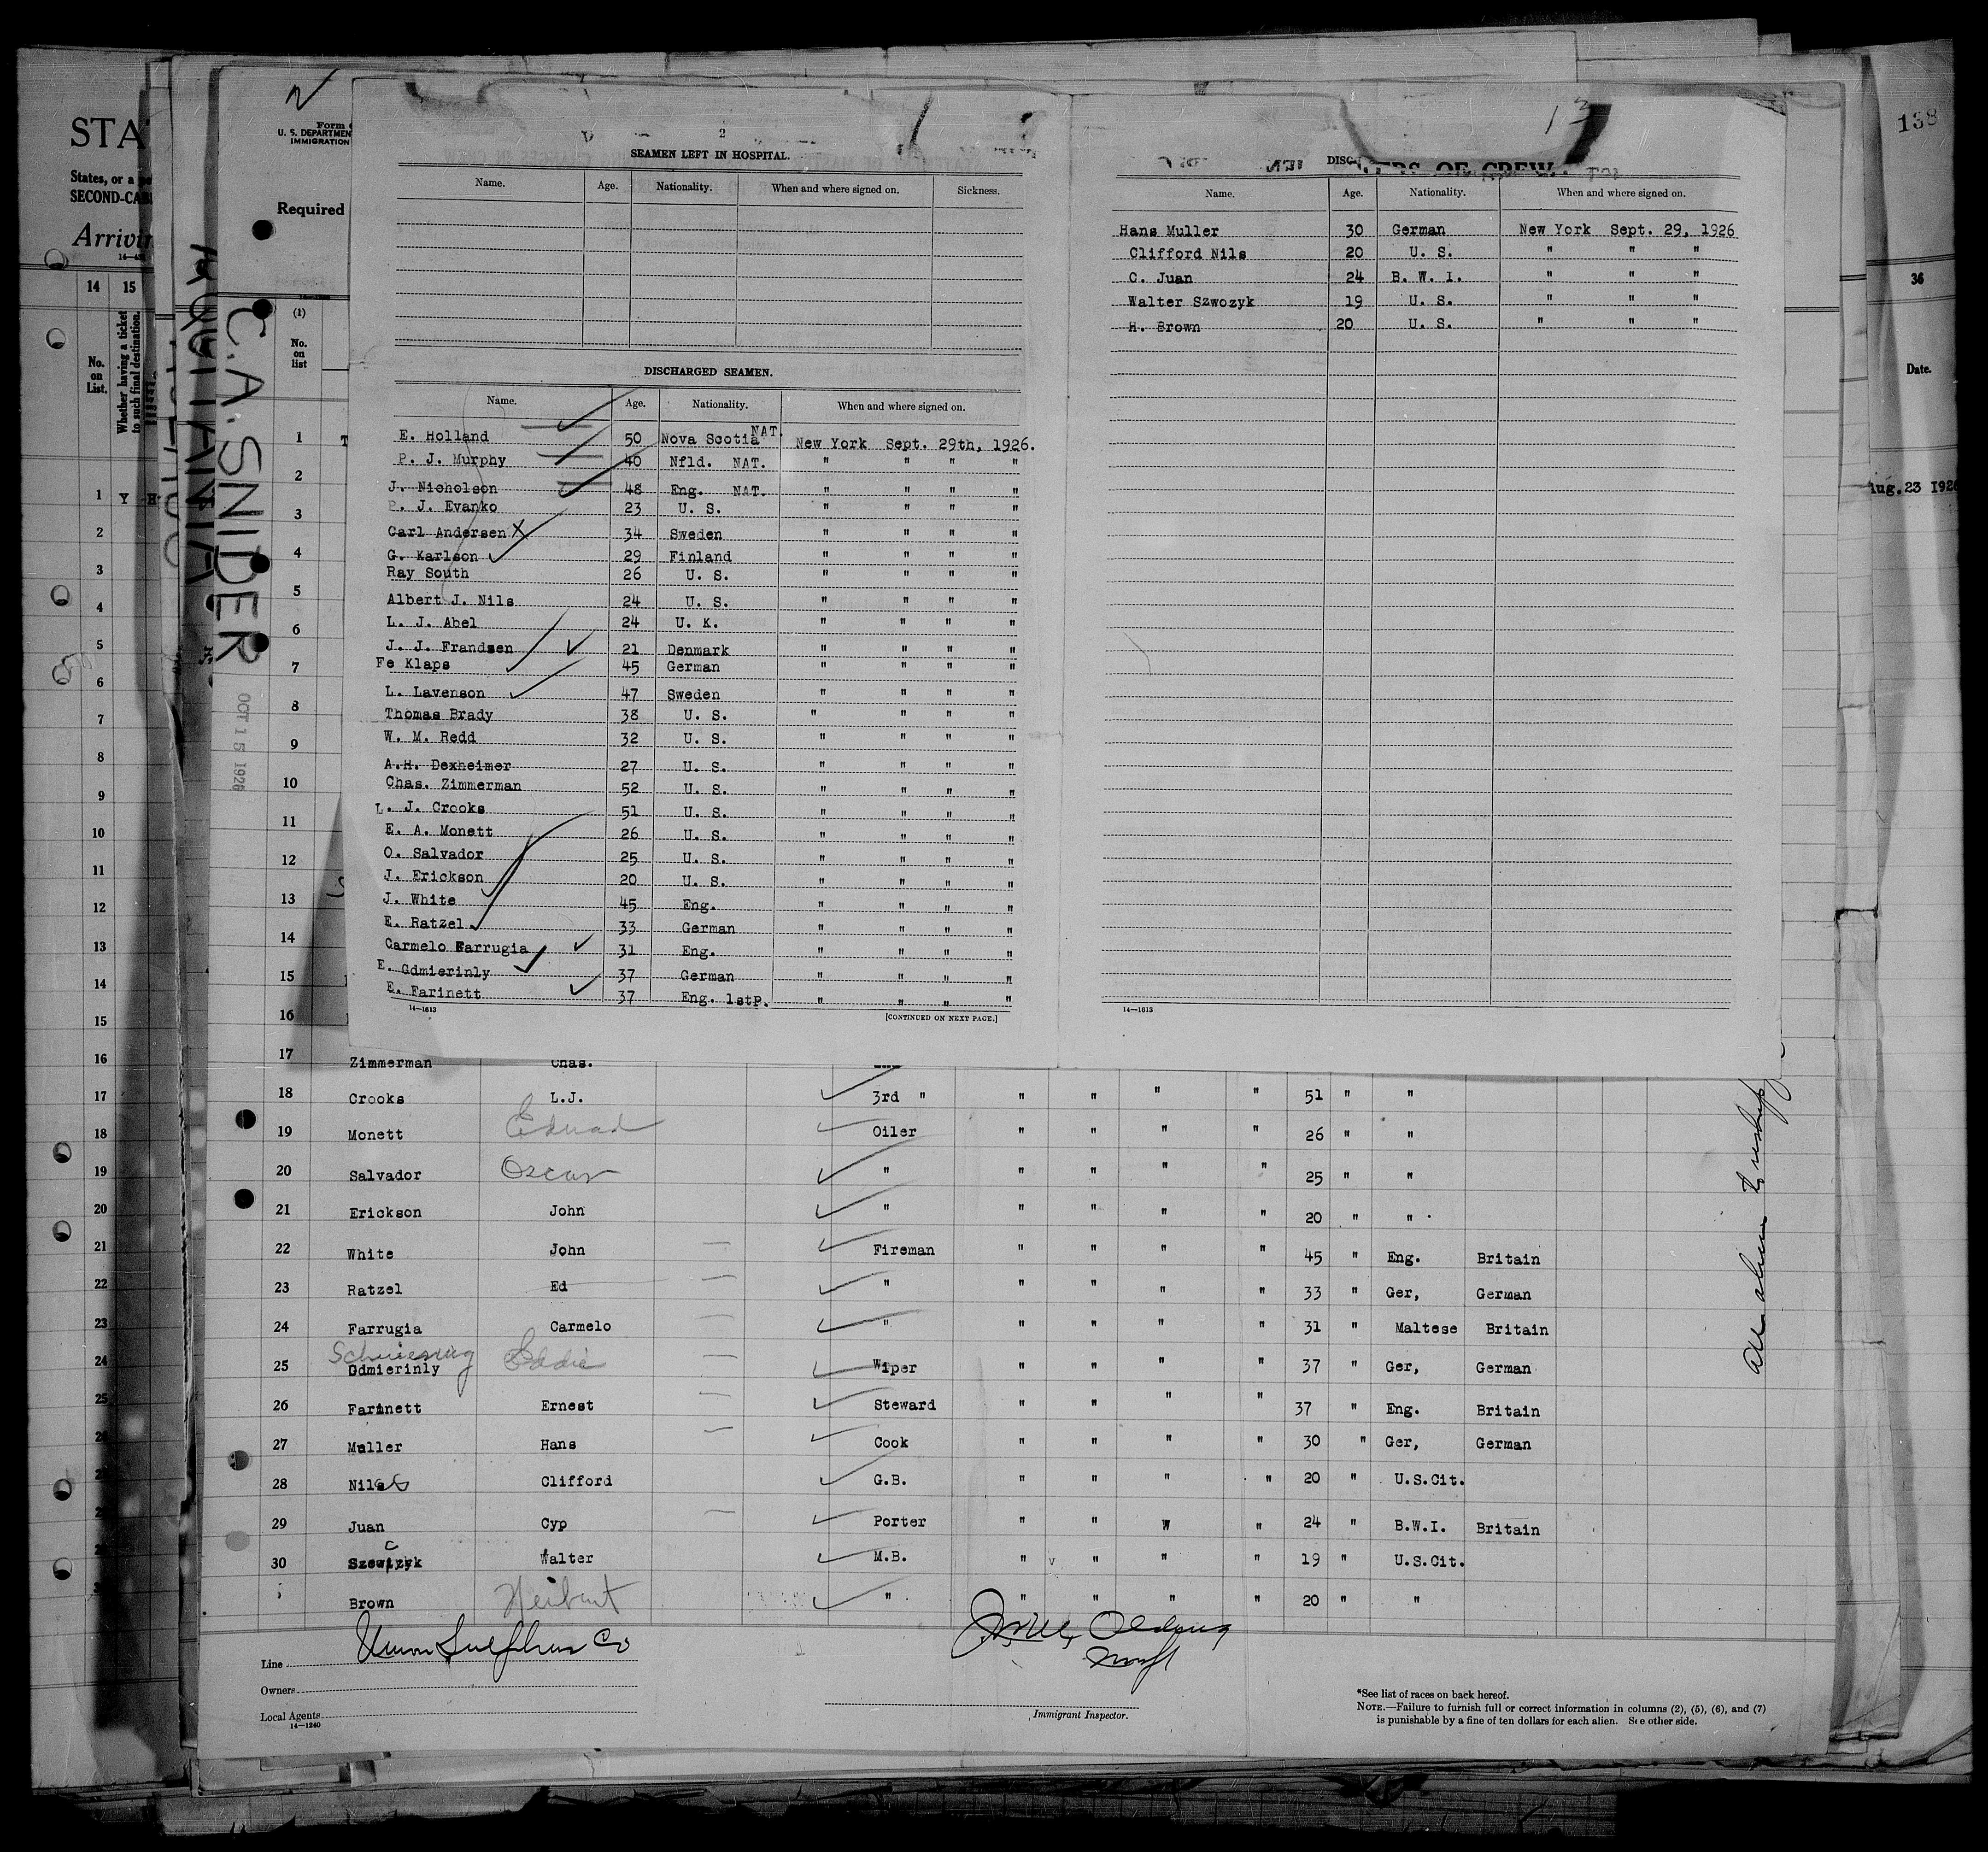 STA
States, or a
SECOND-CAB
Arrivin
14 15
No. on List.
Whether having a ticket to such final destination.
1 Y H
2
3
4
5
6
7
8
9
10
11
12
13
14
15
16
17
18
19
20
21
22
23
24
25
C. A. SNIDER
OCT 15 1926
U. S. DEPARTMEN
IMMIGRATION
Required
(1)
No. on list
1
2
3
4
5
6
7
8
9
10
11
12
13
14
15
16
2
SEAMEN LEFT IN HOSPITAL.
Name. Age. Nationality. When and where signed on. Sickness.
DISCHARGED SEAMEN.
Name. Age. Nationality. When and where signed on.
E. Holland 50 Nova Scotia NAT. New York Sept. 29th, 1926.
P. J. Murphy 40 Nfld. NAT. " " " "
J. Nicholson 48 Eng. NAT. " " " "
P. J. Evanko 23 U. S. " " " "
Carl Andersen X 34 Sweden " " " "
G. Karlson 29 Finland " " " "
Ray South 26 U. S. " " " "
Albert J. Nils 24 U. S. " " " "
L. J. Abel 24 U. K. " " " "
J. J. Frandsen 21 Denmark " " " "
Fe Klaps 45 German " " " "
L. Lavenson 47 Sweden " " " "
Thomas Brady 38 U. S. " " " "
W. M. Redd 32 U. S. " " " "
A.H. Dexheimer 27 U. S. " " " "
Chas. Zimmerman 52 U. S. " " " "
L. J. Crooks 51 U. S. " " " "
E. A. Monett 26 U. S. " " " "
O. Salvador 25 U. S. " " " "
J. Erickson 20 U. S. " " " "
J. White 45 Eng. " " " "
E. Ratzel 33 German " " " "
Carmelo Farrugia 31 Eng. " " " "
E. Gdmierinly 37 German " " " "
E. Farinett 37 Eng. 1stp. " " " "
14—1613 [CONTINUED ON NEXT PAGE.]
13
DISC
Name. Age. Nationality. When and where signed on.
Hans Muller 30 German New York Sept. 29, 1926
Clifford Nils 20 U. S. " " "
C. Juan 24 B. W. I. " " "
Walter Szwozyk 19 U. S. " " "
H. Brown 20 U. S. " " "
14—1613
138
36
Date.
Aug. 23 1926
17 Zimmerman Chas.
18 Crooks L.J. 3rd " " " " " 51 " "
19 Monett Eduad Oiler " " " " 26 " "
20 Salvador Oscar " " " " " 25 " "
21 Erickson John " " " " " 20 " "
22 White John Fireman " " " " 45 " Eng. Britain
23 Ratzel Ed " " " " " 33 " Ger, German
24 Farrugia Carmelo " " " " " 31 " Maltese Britain
25 Gdmierinly Eddie Wiper " " " " 37 " Ger, German
26 Farinett Ernest Steward " " " " 37 " Eng. Britain
27 Muller Hans Cook " " " " 30 " Ger, German
28 Nils Clifford G.B. " " " " 20 " U.S.Cit.
29 Juan Cyp Porter " " W " 24 " B.W.I. Britain
30 Walter M.B. " " " " 19 " U.S.Cit.
Brown Heibert " " " " " 20 " "
All aliens to reship
Line Union Sulphur Co
Owners
Local Agents
14—1240
Immigrant Inspector.
*See list of races on back hereof.
NOTE.—Failure to furnish full or correct information in columns (2), (5), (6), and (7)
is punishable by a fine of ten dollars for each alien. See other side.